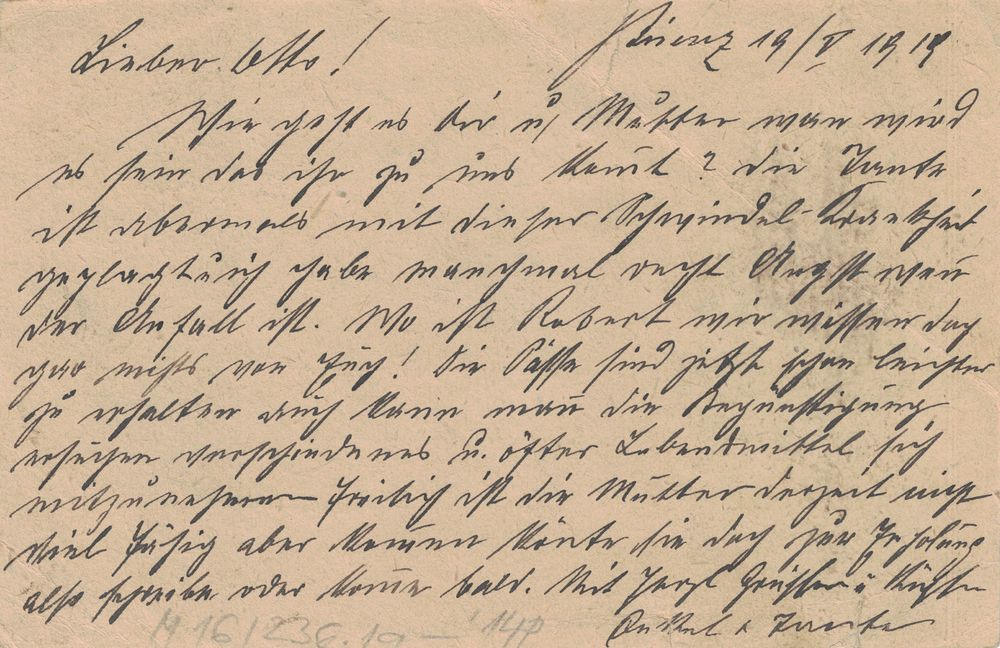 Lieber Otto! 19/V 1919
Wie geht es dir u, Mutter wan wird
es sein das ihr zu uns komt? die Tante
ist abermals mit dieser Schwindel-Krankheit
geplagt u ich habe manchmal recht Angst wen
der Anfall ist. Wo ist Robert wir wissen doch
gar nichts von Euch! Die Pässe sind jetzt schon leichter
zu erhalten auch kann man die Begünstigung
ersuchen verschiedenes u. öfter Lebensmittel sich
mitzunehmen freilich ist die Mutter derzeit nicht
viel fähig aber kommen könte sie doch zur Erholung
also schreibe oder kome bald. Mit Herzl Grüssen u Küssen
Onkel u Tante